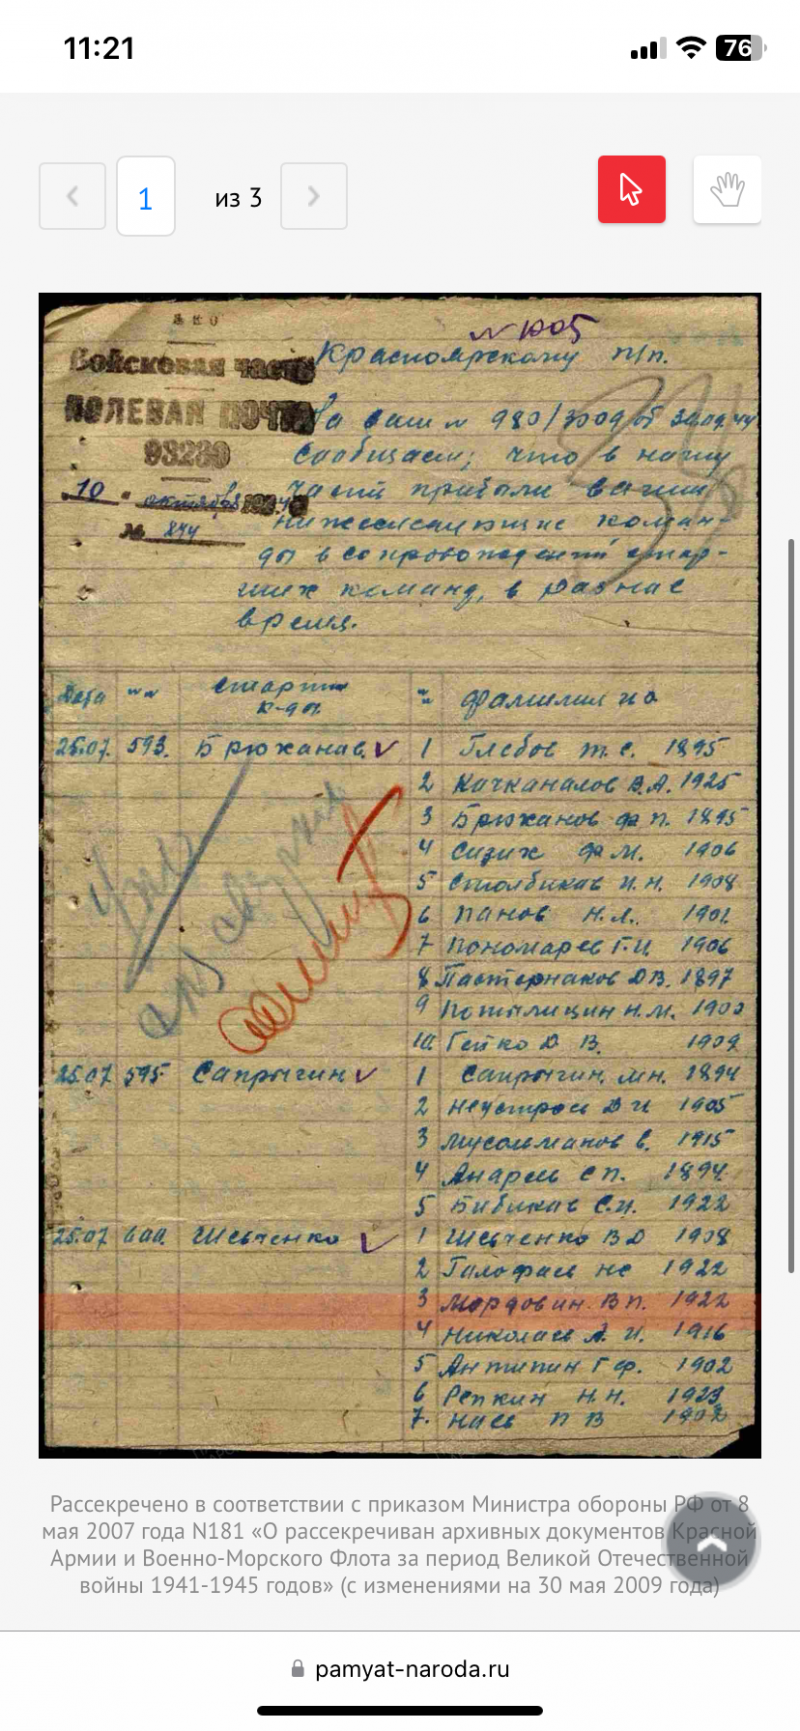 11:21
76
1
из 3
N 1005
Войсковая часть
Красноярскому п/п.
ПОЛЕВАЯ ПОЧТА
На ваш N 980/3009 от 30.09.44
93230
сообщаем, что в нашу
10 " октября
части прибыли ваши
N 844
нижеследующие коман-
ды в сопровождении стар-
ших команд, в разное
время.
Дата
старший
к-ды
фамилия и о
25.07. 593. Брюханов. 1 Глебов М. С. 1895
2 Качканалов В.А. 1925
3 Брюханов Ф П. 1895
4 Сизих Ф М. 1906
5 Столбиков И. Н. 1908
6 Панов Н. Л. 1901
7 Пономарев Г. И. 1906
8 Пастернаков Д В. 1897
9 Потылицин Н. М. 1900
10. Гейко Д В. 1909
25.07 595 Сапрыгин 1 Сапрыгин. М Н. 1894
2 Неустроев В И 1905
3 Мусолманов В. 1915
4 С П. 1894
5 Бибиков С. И. 1922
25.07 600. Шевченко 1 Шевченко В Д 1908
2 Н С 1922
3 Мордовин. В П. 1922
4 Николаев А. И. 1916
5 Антипин Г Ф. 1902
6 Репкин Н. Н. 1923
7. П В
Рассекречено в соответствии с приказом Министра обороны РФ от 8
мая 2007 года N181 «О рассекречиван архивных документов Красной
Армии и Военно-Морского Флота за период Великой Отечественной
войны 1941-1945 годов» (с изменениями на 30 мая 2009 года)
pamyat-naroda.ru